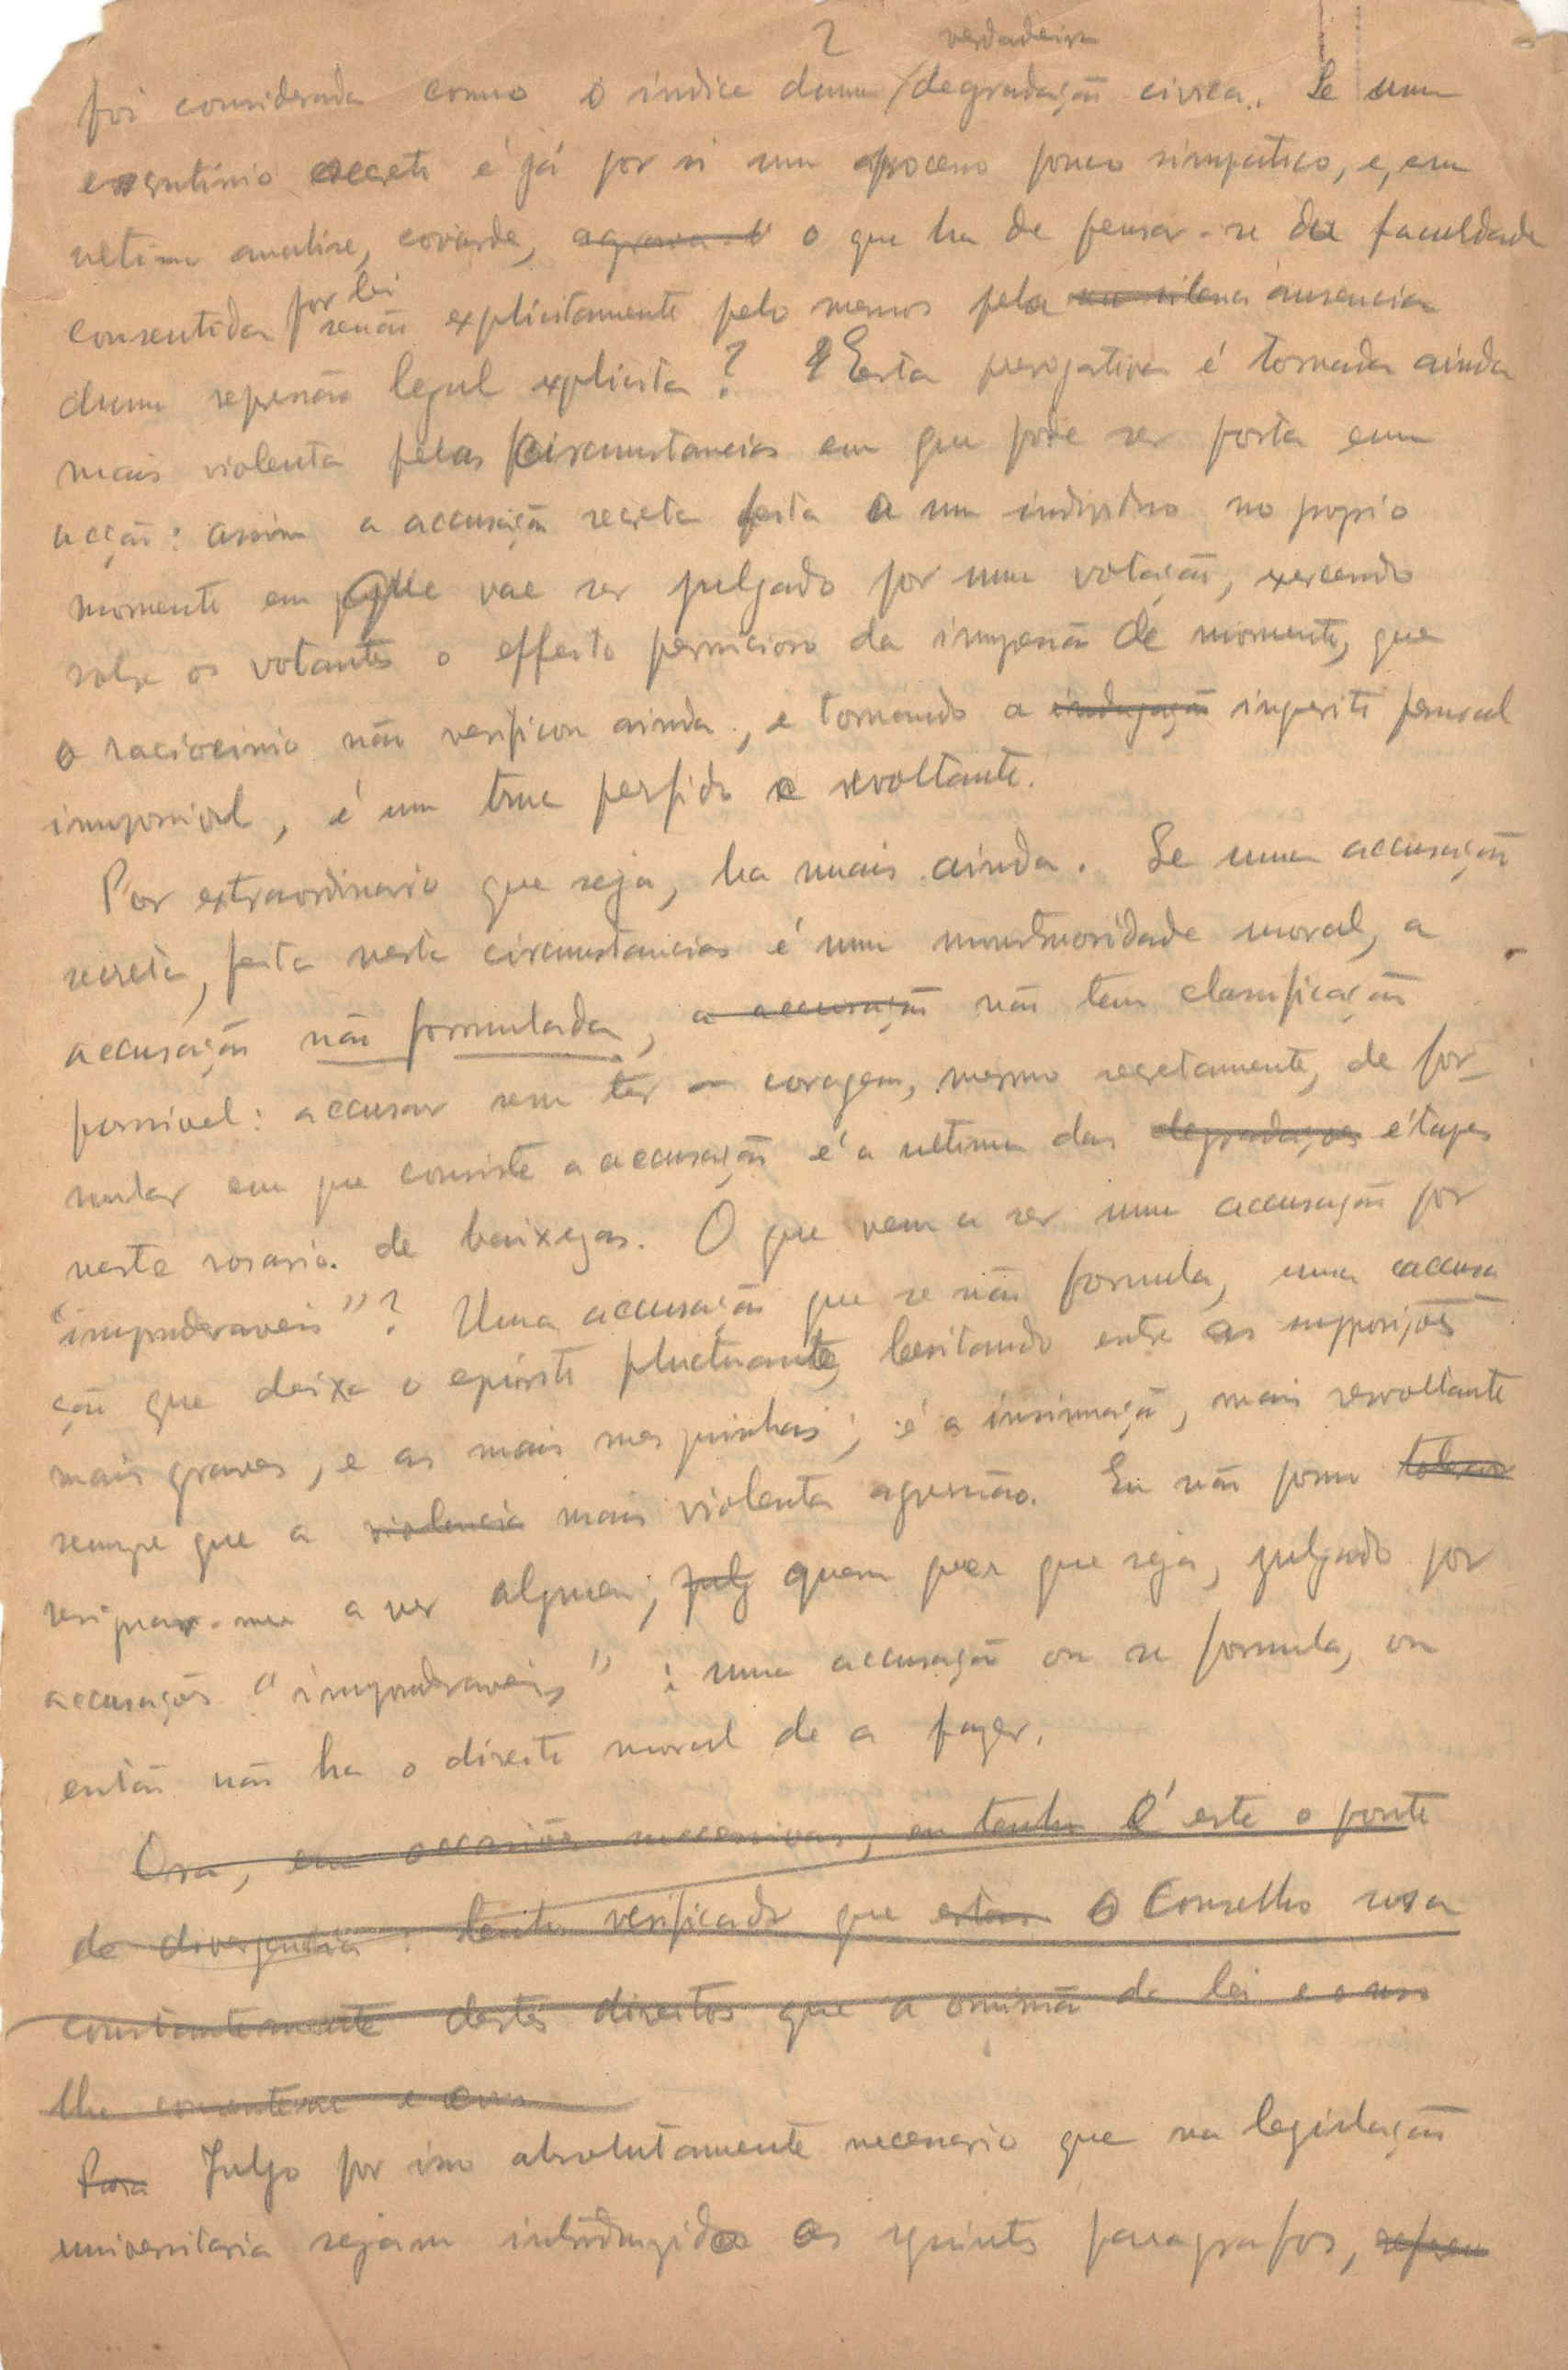 2 verdadeira
foi considerada como o indice duma degradação civica. Se um
escrutinio secreto é já por si um processo pouco simpatico, e, em
ultima analise, covarde, o que ha de pensar-se da faculdade
consentida por lei senão explicitamente pelo menos pela ausencia
duma repressão legal explicita? Esta prerogativa é tornada ainda
mais violenta pelas circumstancias em que pode ser posta em
acção: assim a accusação secreta feita a um individuo no proprio
momento em que vae ser julgado por uma votação, exercendo
sobre os votantes o effeito pernicioso da impressão de momento, que
o raciocinio não verificou ainda, e tornando a inquerito pessoal
impossivel, é um truc perfido e revoltante.
Por extraordinario que seja, ha mais ainda. Se uma accusação
secreta, feita nesta circumstancias é uma monstruosidade moral, a
accusação não formulada, a accusação não tem classificação
possivel: accusar sem ter a coragem, mesmo secretamente, de for-
mular em que consiste a accusação é a ultima das degradações étapes
neste rosario de baixezas. O que vem a ser uma accusação por
"imponderaveis"? Uma accusação que se não formula, uma accusa
ção que deixa o espirito fluctuante, hesitando entre as supposições
mais graves, e as mais mesquinhas; é a insinuação, mais revoltante
sempre que a violencia mais violenta agressão. Eu não posso tolerar
resignar-me a ver alguem, julg quem quer que seja, julgado por
accusações "imponderaveis": uma accusação ou se formula, ou
então não ha o direito moral de a fazer.
Ora, em occasiões successivas, eu tenho é este o ponto
de divergencia: tenho verificado que estas o Conselho usa
constantemente destes direitos que a omissão da lei e o uso
lhe consentem e
Para Julgo por isso absolutamente necessario que na legislação
universitaria sejam introduzidos os seguintes paragrafos,